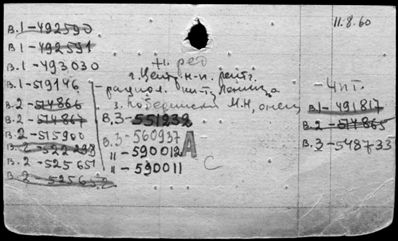 11.8.60
В.1 - 492590
В.1 - 492591
В.1 - 493030
В.1 - 519146
В.2 - 514866
В.2 - 514867
В.2 - 515900
В.2 - 522298
В.2 - 525651
В.2 - 525652
г. Центр. н-и. рентг.
радиол. инст. Ленина
з. М.Н,
В.3 - 551232
В.3 - 560937
" - 590012
" - 590011
А
С
Чит.
В.1 - 491817
В.2 - 514865
В.3 - 548733